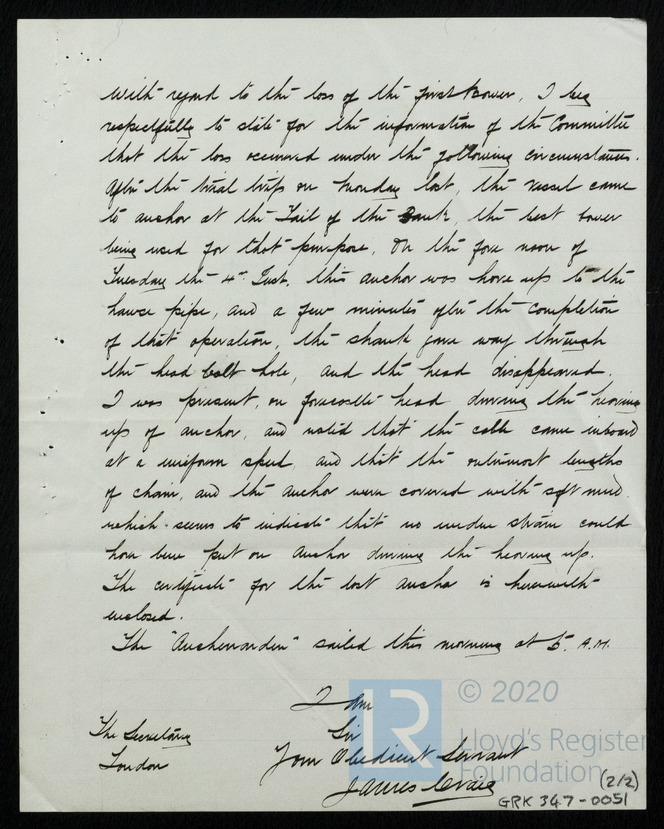 With regard to the loss of the first bower, I beg
respectfully to state for the information of the Committee
that the loss occurred under the following circumstances.
After the trial trip on Monday last, the vessel came
to anchor at the Tail of the Bank, the best bower
being used for that purpose. On the fore noon of
Tuesday the 4th Inst, this anchor was hove up to the
hawse pipe, and a few minutes after the completion
of that operation, the shank gave way through
the head bolt hole, and the head disappeared.
I was present, on forecastle head during the heaving
up of anchor, and noted that the cable came inboard
at a uniform speed, and that the outermost lengths
of chain, and the anchor were covered with soft mud.
which seems to indicate that no undue strain could
have been put on anchor during the heaving up.
The certificate for the lost anchor is herewith
enclosed.
The "Auchenarden" sailed this morning at 5. A.M.
I am
Sir
Your Obedient Servant
James Craig
The Secretary
London
© 2020
Lloyd's Register
Foundation
(2/2)
GRK 347-0051